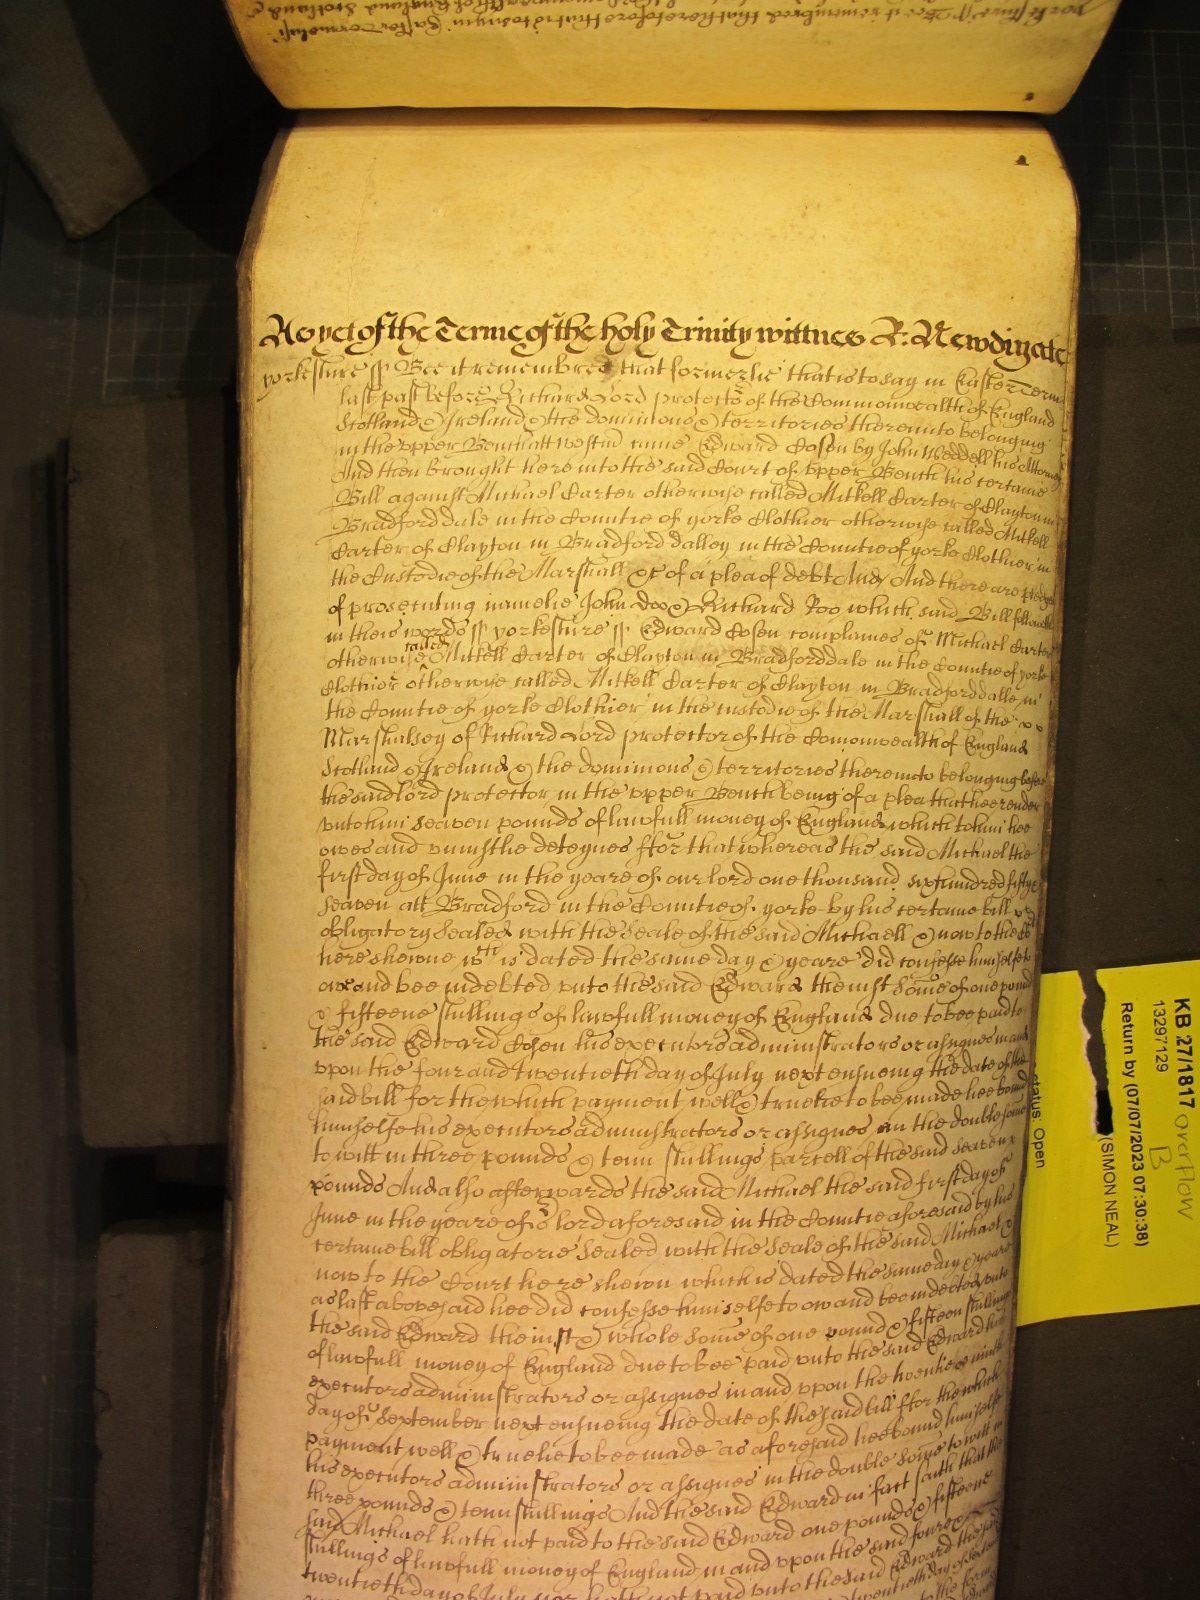 As yet of the Terme of the holy Trinity wittnes R: Newdigate
yorkeshire ss Bee it remembred that formerlie that is to say in Easter Terme
last past before Richard Lord protector of the Commonwealth of England
Scotland & Ireland & the dominions & territories thereunto belonging
in the upper Bench att Westmr came Edward Cosen by John Weddell his Attorney
And then brought here into the said Court of upper Bench his certaine
Bill against Michael Carter otherwise called Mitkell Carter of Clayton in
Bradforddale in the Countie of yorke Clothier otherwise called Mitkell
Carter of Clayton in Bradforddalley in the Countie of yorke Clothier in
the Custodie of the Marshall &c of a plea of debt And And there are pledges
of prosecuting namelie John Doo & Richard Roo which said Bill followeth
in theis words ss yorkeshire ss Edward Cosen complaines of Michael Carter
otherwise called Mitkell Carter of Clayton in Bradforddale in the Countie of yorke
Clothier otherwise called Mitkell Carter of Clayton in Bradforddalle in
the Countie of yorke Clothier in the custodie of the Marshall of the
Marshalsey of Richard Lord protector of the Comonwealth of England
Scotland & Ireland & the dominions & territories thereunto belonging before
the said lord protector in the upper Bench being of a plea that hee render
unto him seaven pounds of lawfull money of England which to him hee
owes and uniustlie deteynes ffor that whereas the said Michael the
first day of June in the yeare of our lord one thousand six hundred fiftye
seaven att Bradford in the Countie of yorke by his certaine bill
obligatory sealed with the seale of the said Michaell & now to the Court
here shewne wch is dated the same day & yeare did confesse himselfe to
owe and bee indebted unto the said Edward the iust some of one pound
& fifteene shillings of lawfull money of England due to bee paid to
the said Edward Cosen his executors administrators or assignes in and
upon the four and twentieth day of July next ensueing the date of the
said bill for the which payment well & truelie to bee made hee bound
himselfe his executors administrators or assignes in the double some
to witt in three pounds & tenn shillings parcell of the said seaven
pounds And also afterwards the said Michael the said first day of
June in the yeare of or lord aforesaid in the Countie aforesaid by his
certaine bill obligatorie sealed with the seale of the said Michael &
now to the Court here shewn which is dated the same day & yeare
as last abovesaid hee did confesse himselfe to ow and bee indebted unto
the said Edward the iust & whole some of one pound & fifteen shillings
of lawfull money of England due to bee paid unto the said Edward his
executors administrators or assignes in and upon the twentie & ninth
day of September next ensueing the date of the said bill ffor the which
payment well & truelie to bee made as aforesaid hee bound himselfe
his executors administrators or assignes in the double some to witt in
three pounds & tenn shillings And the said Edward in fact saith that the
said Michael hath not paid to the said Edward one pounds & fifteene
shillings of lawfull money of England in and upon the said foure &
twentieth day of July nor hath not paid unto the said Edward the said
KB 27/1817 overflow
B
13297129
Return by (07/07/2023 07:30:38)
(SIMON NEAL)
status: Open